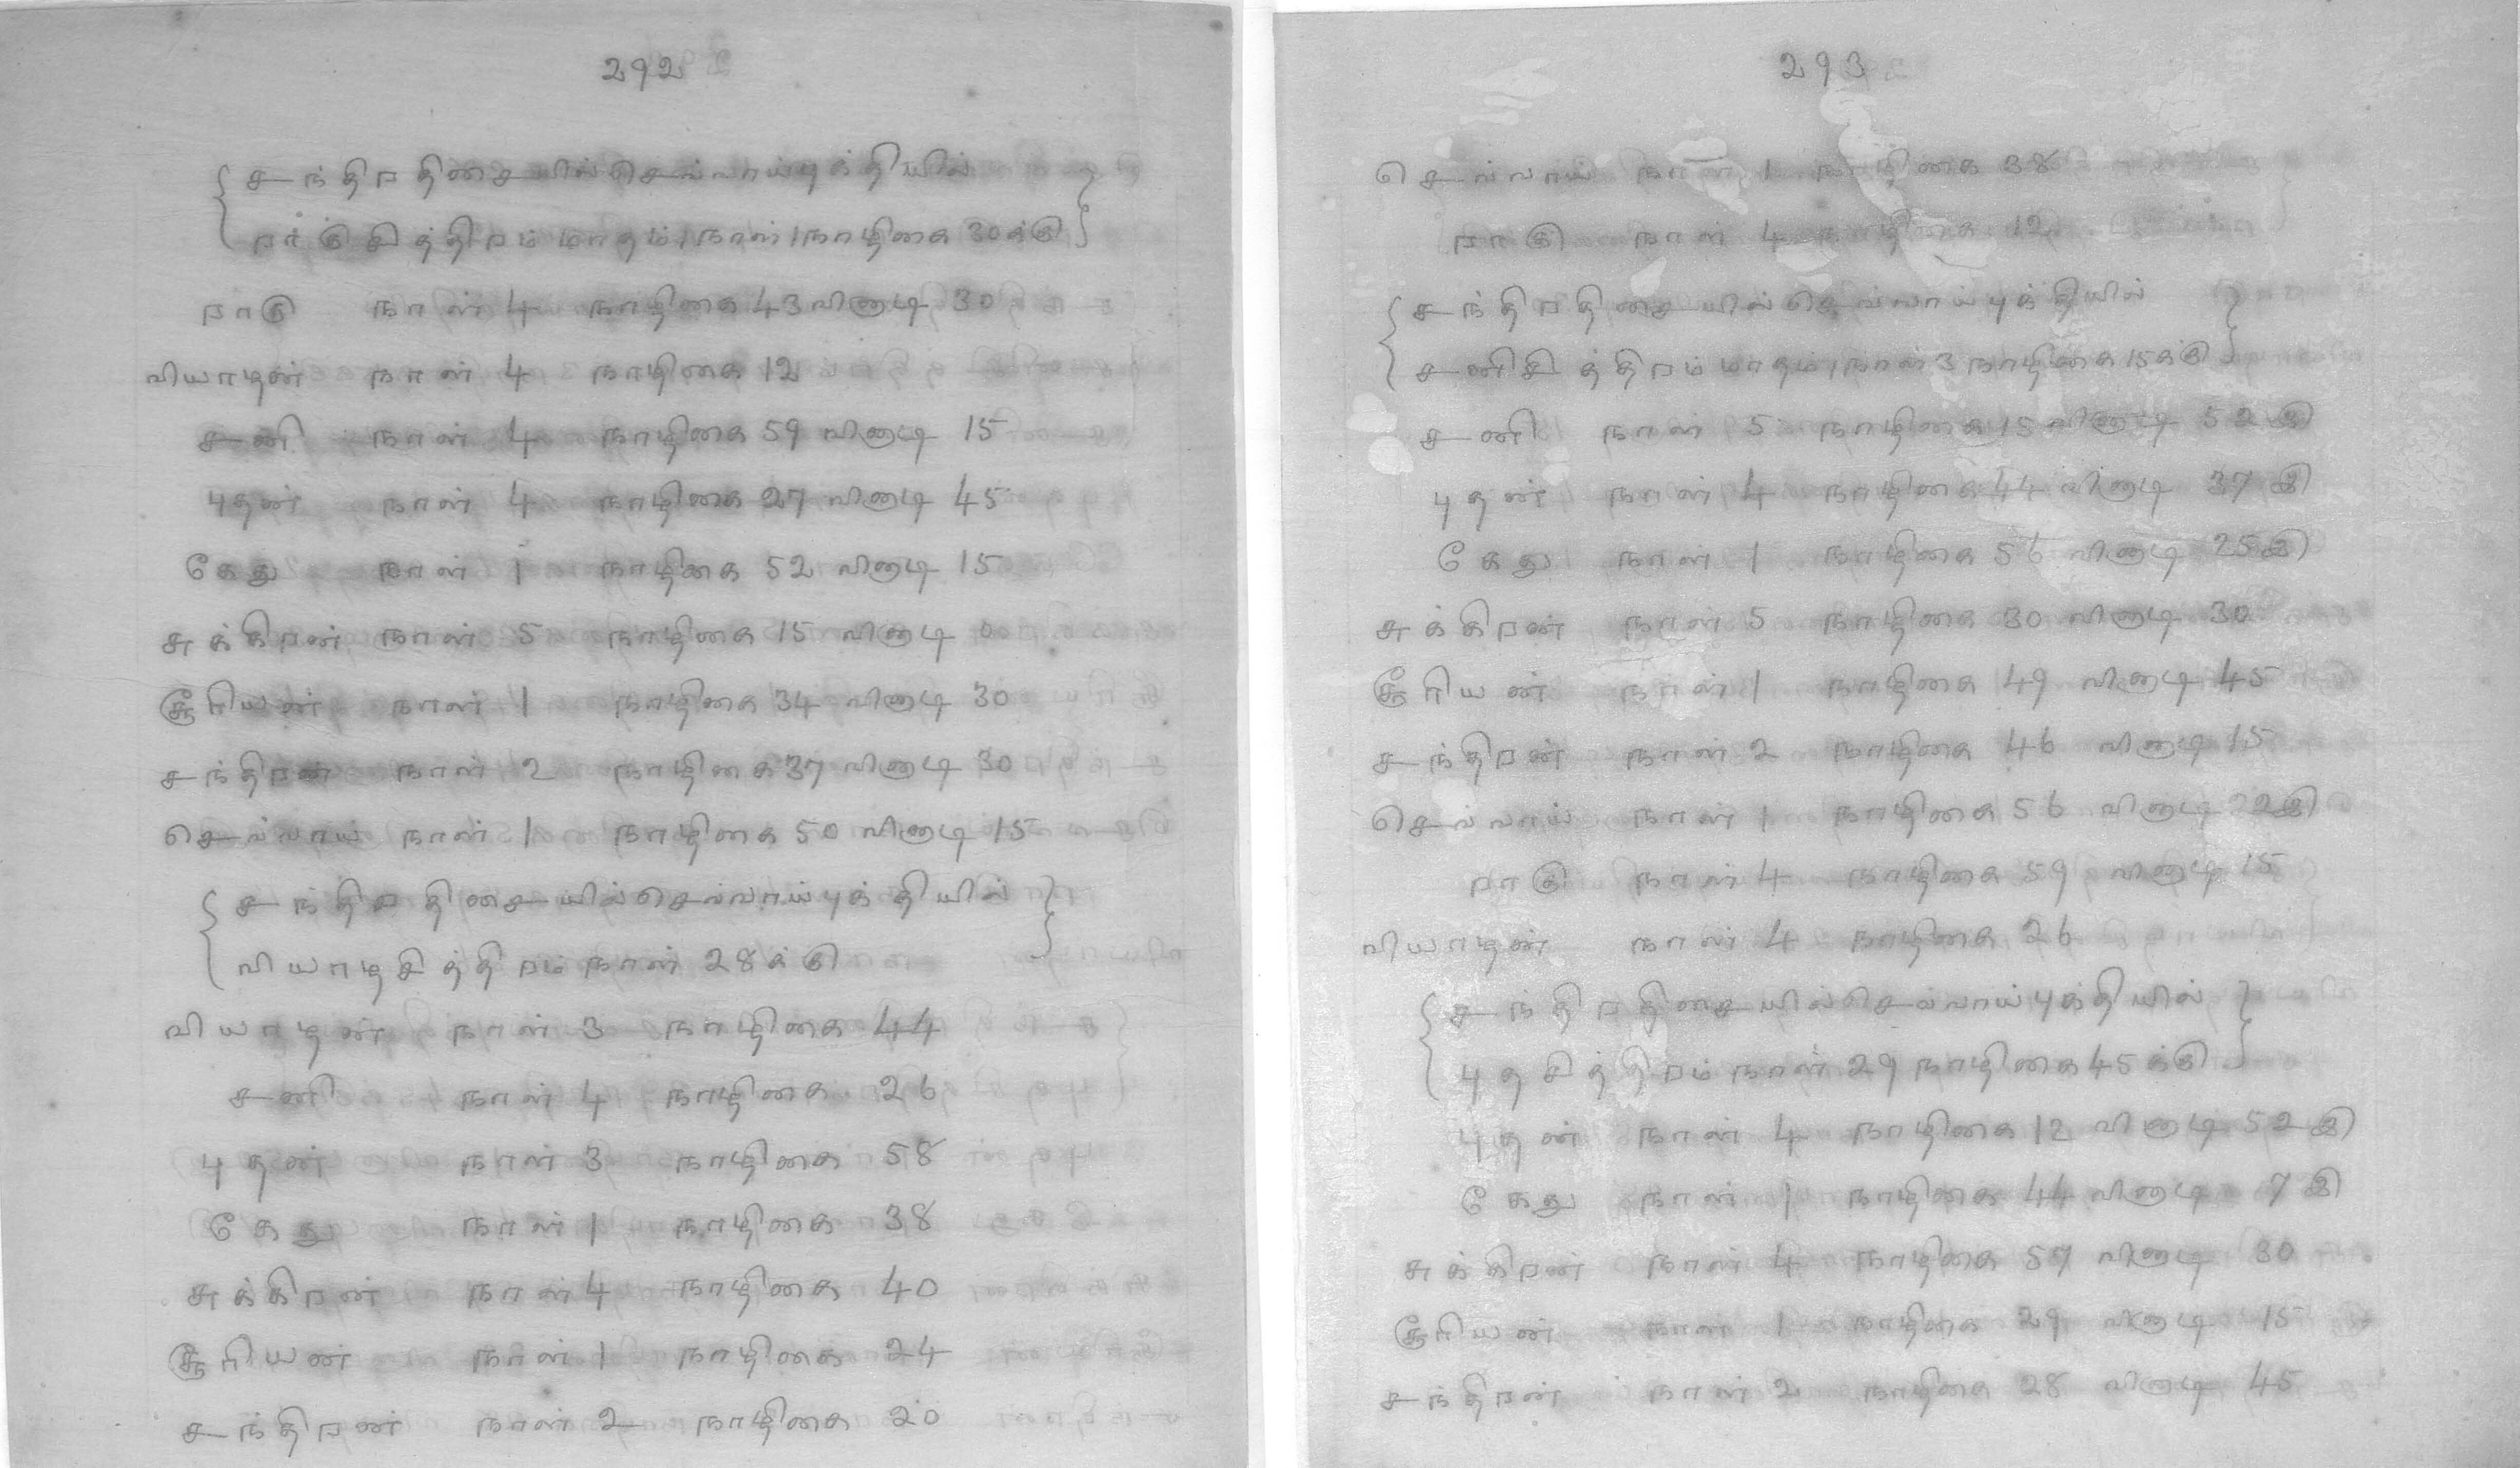 292
சந்திரதிசையில்செவ்வாய்புக்தியில்
ராகுசித்திரம்மாதம்1நாள்1நாழிகை30க்கு
ராகு நாள் 4 நாழிகை 43 வினாடி 30
வியாழன் நாள் 4 நாழிகை 12
சனி நாள் 4 நாழிகை 59 வினாடி 15
புதன் நாள் 4 நாழிகை 27 வினாடி 45
கேது நாள் 1 நாழிகை 52 வினாடி 15
சுக்கிரன் நாள் 5 நாழிகை 15 வினாடி 0
சூரியன் நாள் 1 நாழிகை 34 வினாடி 30
சந்திரன் நாள் 2 நாழிகை 37 வினாடி 30
செவ்வாய் நாள் 1 நாழிகை 50 வினாடி 15
சந்திரதிசையில்செவ்வாய்புக்தியில்
வியாழசித்திரம்நாள் 28க்கு
வியாழன் நாள் 3 நாழிகை 44
சனி நாள் 4 நாழிகை 26
புதன் நாள் 3 நாழிகை 58
கேது நாள் 1 நாழிகை 38
சுக்கிரன் நாள் 4 நாழிகை 40
சூரியன் நாள் 1 நாழிகை 24
சந்திரன் நாள் 2 நாழிகை 20
293
செவ்வாய் நாள் 1 நாழிகை 38
ராகு நாள் 4 நாழிகை 12
சந்திரதிசையில்செவ்வாய்புக்தியில்
சனிசித்திரம்மாதம்1நாள்3நாழிகை15க்கு
சனி நாள் 5 நாழிகை 15 வினாடி 52இ
புதன் நாள் 4 நாழிகை 44 வினாடி 37இ
கேது நாள் 1 நாழிகை 56 வினாடி 25இ
சுக்கிரன் நாள் 5 நாழிகை 30 வினாடி 30
சூரியன் நாள் 1 நாழிகை 49 வினாடி 45
சந்திரன் நாள் 2 நாழிகை 46 வினாடி 15
செவ்வாய் நாள் 1 நாழிகை 56 வினாடி 22இ
ராகு நாள் 4 நாழிகை 59 வினாடி 15
வியாழன் நாள் 4 நாழிகை 26
சந்திரதிசையில்செவ்வாய்புக்தியில்
புதசித்திரம்நாள் 29 நாழிகை45க்கு
புதன் நாள் 4 நாழிகை 12 வினாடி 52இ
கேது நாள் 1 நாழிகை 44 வினாடி 7இ
சுக்கிரன் நாள் 4 நாழிகை 57 வினாடி 30
சூரியன் நாள் 1 நாழிகை 29 வினாடி 15
சந்திரன் நாள் 2 நாழிகை 28 வினாடி 45